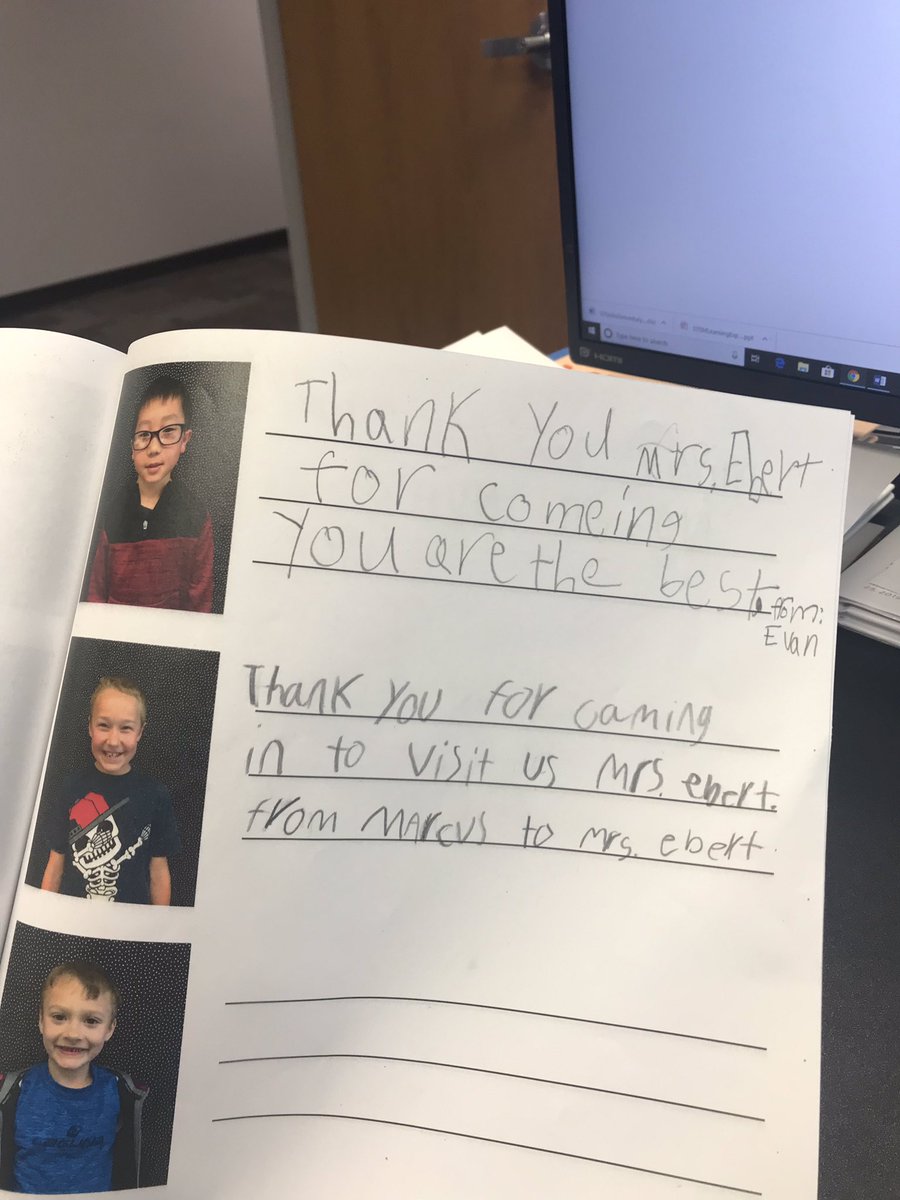 Thank You Mrs. Ebert.
for comeing
You are the best.
from:
Evan
Thank You for caming
in to visit us Mrs. ebert.
from MARcus to Mrs. ebert.
Type here to search
HDMI